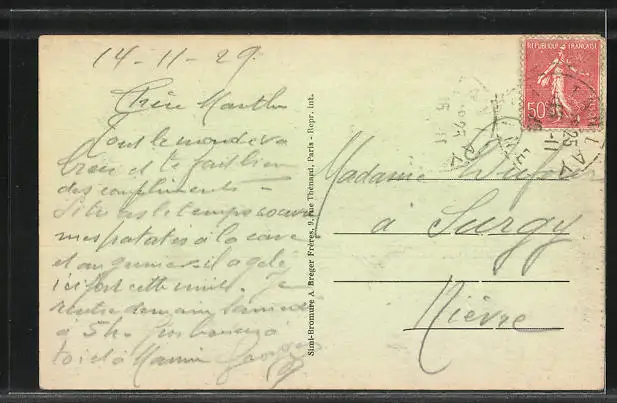 14-11-29
Chère Marthe
Tout le monde va
bien et te fait bien
des compliments -
Si tu as le temps
mes patates à la cave
et au grenier il a gelé
ici fort cette nuit. Je
rentre demain
à 5h.
toi et à Mamie Georges
Simi-Bromure A. Breger Frères, 9, rue Thénard, Paris - Repr. int.
REPUBLIQUE FRANÇAISE
50
Madame
à Surgy
Nièvre